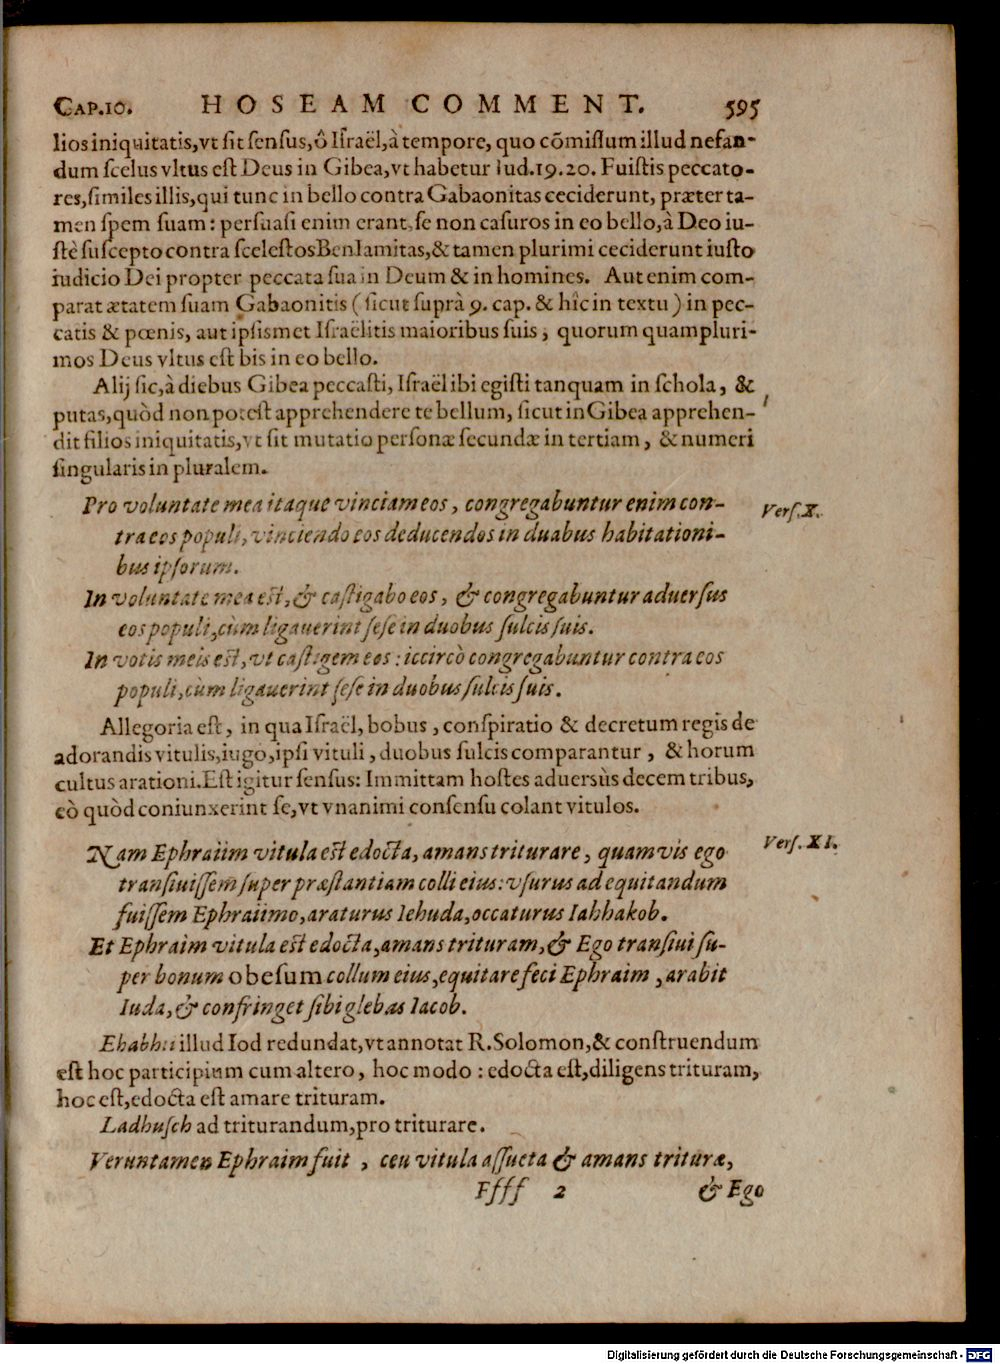 CAP.10. HOSEAM COMMENT. 595
lios iniquitatis, vt sit sensus, ô Israël, à tempore, quo cõmissum illud nefan-
dum scelus vltus est Deus in Gibea, vt habetur Iud.19.20. Fuistis peccato-
res, similes illis, qui tunc in bello contra Gabaonitas ceciderunt, præter ta-
men spem suam: persuasi enim erant, se non casuros in eo bello, à Deo iu-
stè suscepto contra scelestos BenIamitas, & tamen plurimi ceciderunt iusto
iudicio Dei propter peccata sua in Deum & in homines. Aut enim com-
parat ætatem suam Gabaonitis (sicut suprà 9. cap. & hîc in textu) in pec-
catis & pœnis, aut ipsismet Israëlitis maioribus suis, quorum quampluri-
mos Deus vltus est bis in eo bello.
Alij sic, à diebus Gibea peccasti, Israël ibi egisti tanquam in schola, &
putas, quòd non potest apprehendere te bellum, sicut in Gibea apprehen-
dit filios iniquitatis, vt sit mutatio personæ secundæ in tertiam, & numeri
singularis in pluralem.
Pro voluntate mea itaque vinciam eos, congregabuntur enim con-
Vers. X.
tra eos populi, vinciendo eos deducendos in duabus habitationi-
bus ipsorum.
In voluntate mea est, & castigabo eos, & congregabuntur aduersus
eos populi, cùm ligauerint sese in duobus sulcis suis.
In votis meis est, vt castigem eos: iccircò congregabuntur contra eos
populi, cùm ligauerint sese in duobus sulcis suis.
Allegoria est, in qua Israël, bobus, conspiratio & decretum regis de
adorandis vitulis, iugo, ipsi vituli, duobus sulcis comparantur, & horum
cultus arationi. Est igitur sensus: Immittam hostes aduersùs decem tribus,
eò quòd coniunxerint se, vt vnanimi consensu colant vitulos.
Nam Ephraiim vitula est edocta, amans triturare, quamvis ego
Vers. XI.
transiuissem super præstantiam colli eius: vsurus ad equitandum
fuissem Ephraiimo, araturus Iehuda, occaturus Iahhakob.
Et Ephraim vitula est edocta, amans trituram, & Ego transiui su-
per bonum obesum collum eius, equitare feci Ephraim, arabit
Iuda, & confringet sibi glebas Iacob.
Ehabhti illud Iod redundat, vt annotat R. Solomon, & construendum
est hoc participium cum altero, hoc modo: edocta est, diligens trituram,
hoc est, edocta est amare trituram.
Ladhusch ad triturandum, pro triturare.
Veruntamen Ephraim fuit, ceu vitula assueta & amans trituræ,
Ffff 2 & Ego
Digitalisierung gefördert durch die Deutsche Forschungsgemeinschaft - DFG